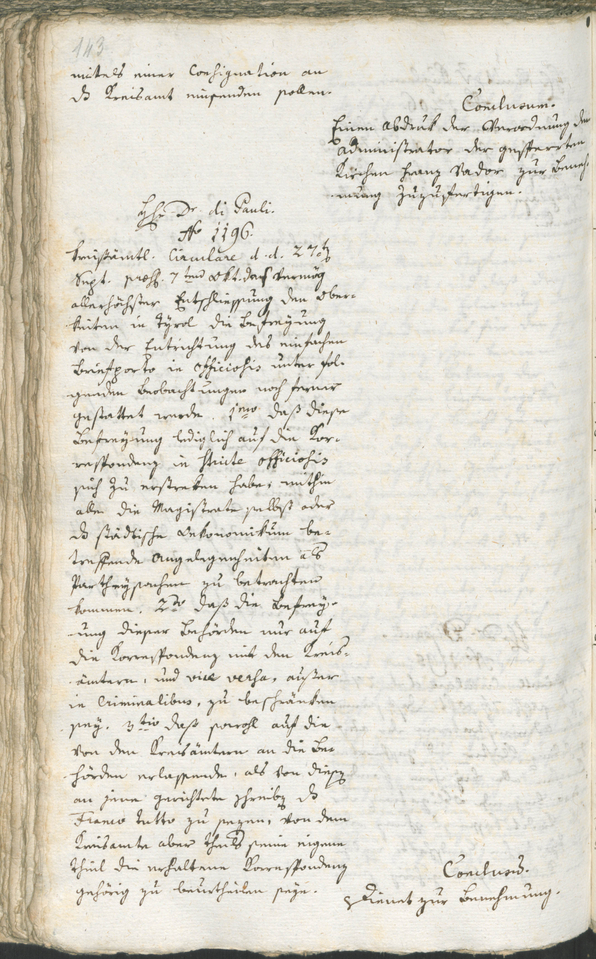 143
mittels einer Consignation an
das Kreisamt einsenden sollen.
Conclusum.
Einen Abdruk der Verordnung dem
Administrator der gesperrten
Kirchen Franz Vador zur Beneh-
mung zuzufertigen.
Hr. Dr. di Pauli.
No 1196.
Kreisämtl. Circulare d. d. 27t
Sept. praes. 7ten Okt. daß vermög
allerhöchster Entschliessung den Ober-
keiten in Tyrol die Befreyung
von der Entrichtung des einfachen
Briefporto in officiosis unter fol-
genden Beobachtungen noch ferner
gestattet werde. 1mo daß diese
Befreyung lediglich auf die Kor-
respondenz in stricte officiosis
sich zu erstreken habe, mithin
alle die Magistrate selbst oder
das städtische Oekonomikum be-
treffende Angelegenheiten als
Partheysachen zu betrachten
kommen. 2do daß die Befrey-
ung dieser Behörden nur auf
die Korrespondenz mit den Kreis-
ämtern, und vice versa, ausser
in Criminalibus, zu beschränken
sey. 3tio daß sowohl auf die
von den Kreisämtern an die Be-
hörden erlassende, als von diesen
an jene gerichtete Schreiben das
Franco tutto zu sezen, von dem
Kreisamte aber seine eigene
theil die erhaltene Korrespondenz
gehörig zu beurtheilen seye.
Conclusum.
Dienet zur Benehmung.